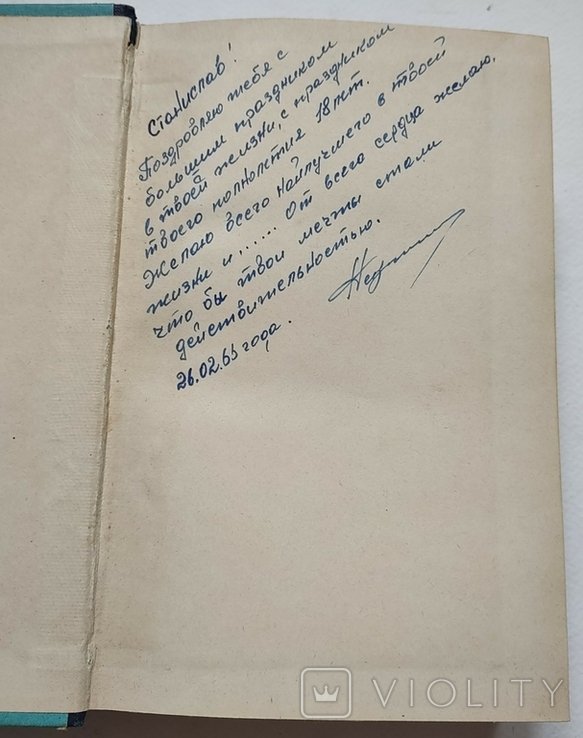 Станислав!
Поздровляю тебя с
большим праздником
в твоей жизни, с праздником
твоего полнолетия 18 лет.
Желаю всего наилучшего в твоей
жизни и...... От всего сердца желаю,
что бы твои мечты стали
действительностью.
26.02.65 года.
VIOLITY